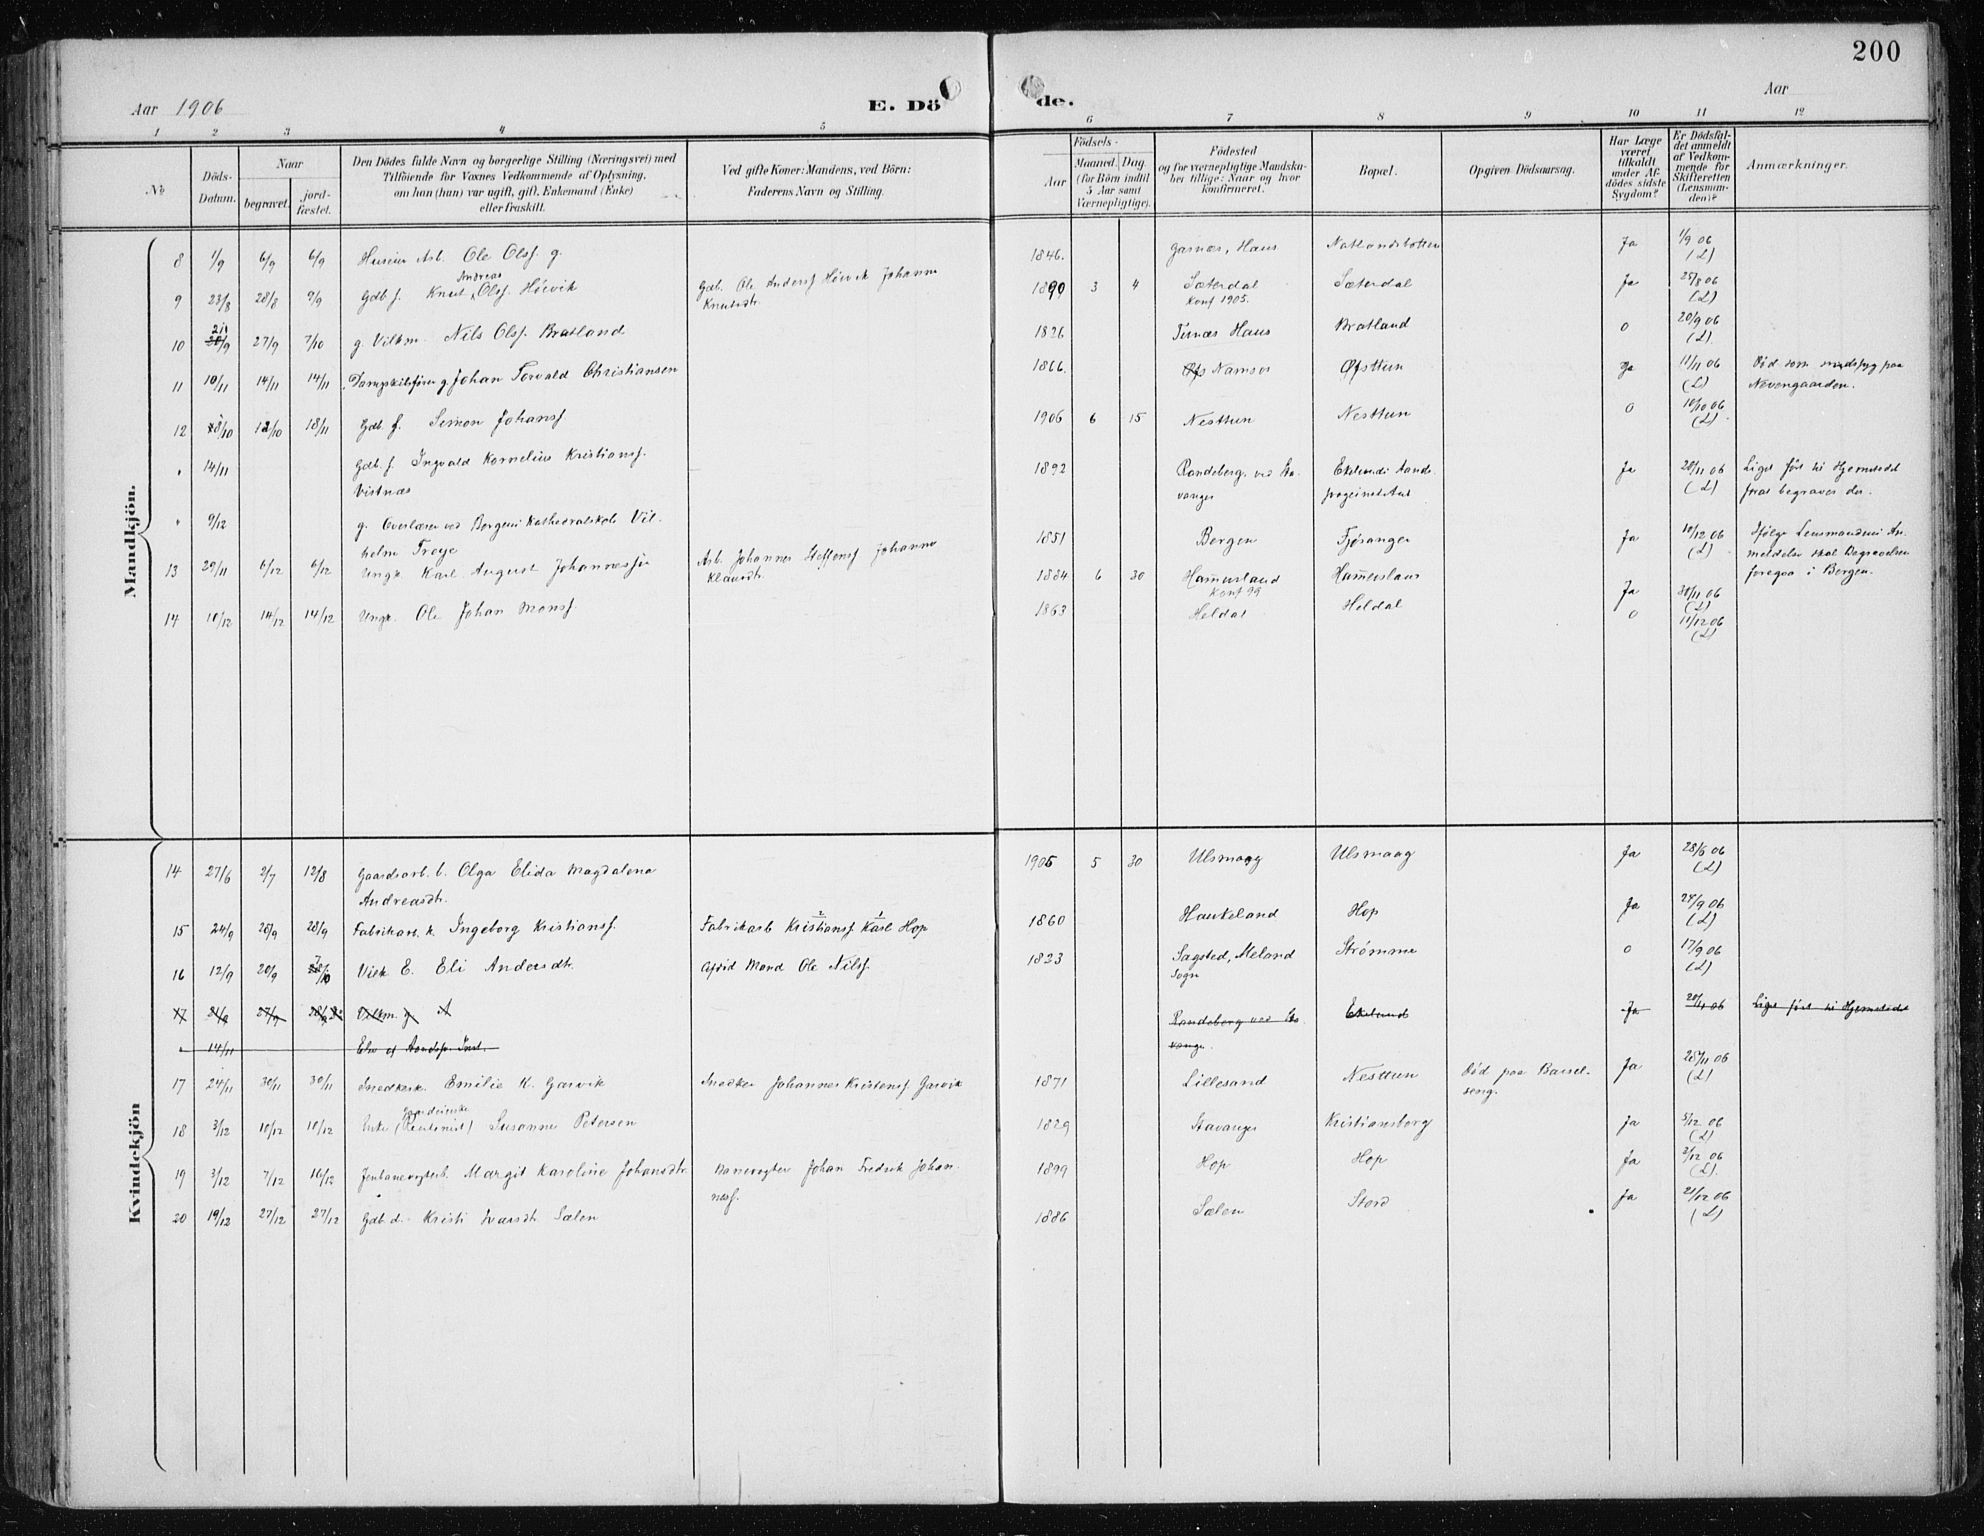 200
Aar 1906
E. Dö de.
Aar
1 2 3 4 5 6 7 8 9 10 11 12
No
Döds-Datum.
Naar
begravet.
jord-fæstet.
Den Dödes fulde Navn og borgerlige Stilling (Næringsvei) med
Tilföiende for Voxnes Vedkommende af Oplysning,
om han (hun) var ugift, gift, Enkemand (Enke)
eller fraskilt.
Ved gifte Koner: Mandens, ved Börn:
Faderens Navn og Stilling.
Födsels-
Aar
Maaned. Dag.
(for Börn indtil
5 Aar samt
Værnepligtige).
Födested
og for værnepligtige Mandska-
ber tillige: Naar og hvor
konfirmeret.
Bopæl.
Opgiven Dödsaarsag.
Har Læge
været
tilkaldt
under Af-
dödes sidste
Sygdom?
Er Dödsfal-
det anmeldt
af Vedkom-
mende for
Skifteretten
(Lensman-
den)?
Anmærkninger.
Mandkjön.
8 1/9 6/9 6/9 Huseier Arb. Ole Olsf. g. 1846. Garnæs, Haus Natlandsbotten Ja 1/9 06 (L)
9 23/8 28/8 9/9 Gdb. f. Knut Andreas Olsf. Höivik Gdb. Ole Andersf Höivik Johanne
Knutsdtr. 1890 3 4 Sæterdal Sæterdal Ja 25/8 06 (L)
Konf 1905.
10 21/9 27/9 7/10 g. Vilkm. Nils Olsf. Bratland 1826 Tunæs Haus Bratland 0 20/9 06 (L)
11 10/11 14/11 14/11 Dampskibsfører g. Johan Torvald Christiansen 1866. Namsos Øfsttun Ja 11/11 06 (L) Död som sindssyg paa
Nevengaarden.
12 8/10 12/10 18/11 Gdb. f. Simon Johansf 1906 6 15 Nesttun Nesttun 0 10/10 06 (L)
" 14/11 Gdb. f. Ingvald Kornelius Kristiansf. 1892 Randeberg. ved Sta- Ekelunds Aands- Ja 20/11 06 (L) Liget ført til Hjemstedet
Vistnæs vanger svageinstitut for at begraves der.
" 9/12 g. Overlærer ved Bergens Kathedralskole Vil-
helm Troye 1851 Bergen Fjøsanger Ja 10/12 06 (L) Ifølge Lensmandens An-
meldelse skal Begravelsen
foregaa i Bergen.
13 29/11 6/12 6/12 Ungk. Karl August Johannesf. Arb. Johannes Steffensf Johanne
Klausdtr. 1884 6 30 Hamersland Hamersland Ja 30/11 06 (L)
Konf 99
14 10/12 14/12 14/12 Ungk. Ole Johan Monsf. 1863 Heldal Heldal 0 11/12 06 (L)
Kvindekjön
14 27/6 2/7 12/8 Gaardsarb. b. Olga Elida Magdalena 1906 5 30 Ulsmaag Ulsmaag Ja 28/6 06 (L)
Andreasdtr.
15 24/9 28/9 28/9 Fabrikarb. k. Ingeborg Kristiansf. Fabrikarb Kristiansf Karl Hop 1860 Haukeland Hop Ja 24/9 06 (L)
16 12/9 20/9 7/10 Vilk E. Eli Andersdtr. Afdöd Mand Ole Nilsf. 1823 Sagsted, Meland Strømme 0 17/9 06 (L)
Sogn
17 21/9 27/9 Vilkm. g A Randeberg ved Sta- Ekelund Ja 20/11 06 Liget ført til Hjemstedet
" 14/11 Elev af Aandssv. Inst. vanger.
17 24/11 30/11 30/11 Snedkerk. Emilie K. Garvik Snedker Johannes Kristensf Garvik 1871 Lillesand Nesttun Död paa Barsel-
seng. Ja 25/11 06 (L)
18 3/12 10/12 10/12 Enke (Rentenist) Gaardeierske Susanne Petersen 1829 Stavanger Kristiansborg Ja 5/12 06 (L)
19 3/12 7/12 16/12 Jernbanevogterb. Margit Karoline Johansdtr Banevogter Johan Fredrik Johan-
nesf. 1899 Hop Hop Ja 3/12 06 (L).
20 19/12 27/12 27/12 Gdb. d. Kristi Ivarsdtr. Sælen 1886 Sælen Stord Ja 21/12 06 (L)